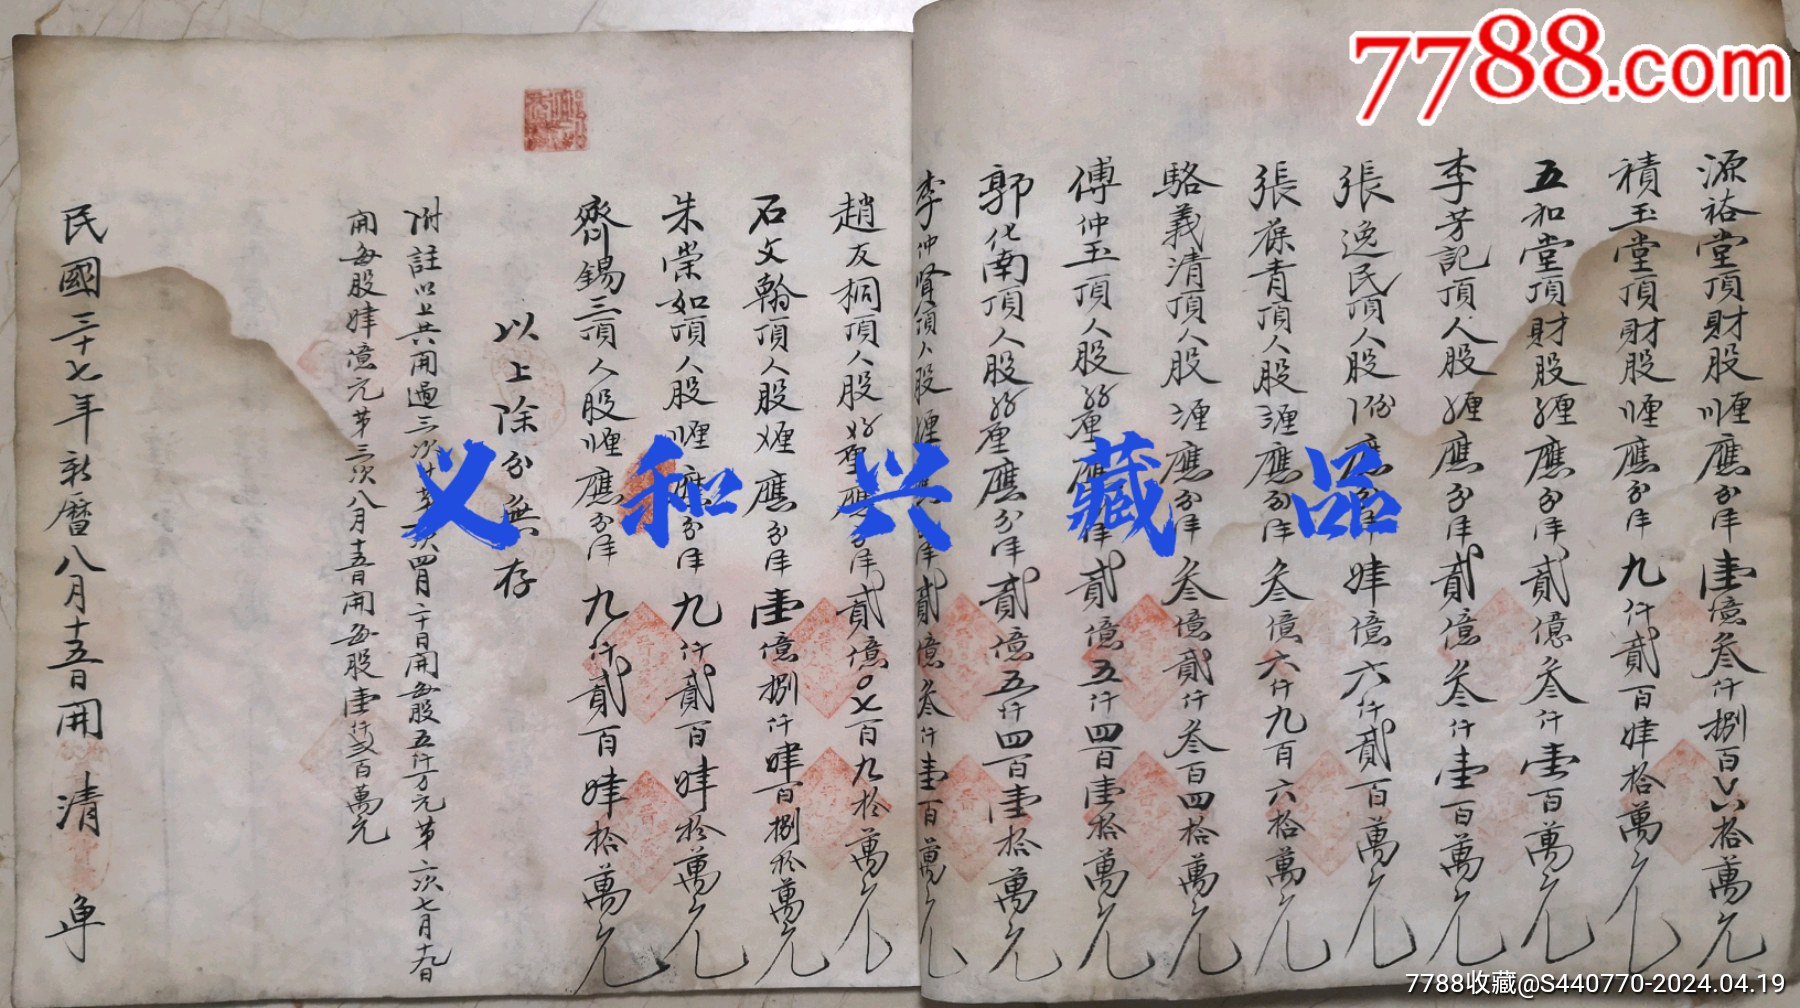 7788.com
源裕堂頂財股 應分洋壹億叁仟捌百六拾萬元
積玉堂頂財股 應分洋九仟貳百肆拾萬元
五和堂頂財股 應分洋貳億叁仟壹百萬元
李芳記頂人股 應分洋貳億叁仟壹百萬元
張逸民頂人股 應分洋肆億六仟貳百萬元
張葆青頂人股 應分洋叁億六仟九百六拾萬元
駱義清頂人股 應分洋叁億貳仟叁百四拾萬元
傅仲玉頂人股 應分洋貳億五仟四百壹拾萬元
郭化南頂人股 應分洋貳億五仟四百壹拾萬元
李仲賢頂人股 應分洋貳億叁仟壹百萬元
趙友桐頂人股 應分洋貳億〇七百九拾萬元
石文翰頂人股 應分洋壹億捌仟肆百捌拾萬元
朱崇如頂人股 應分洋九仟貳百肆拾萬元
齊錫三頂人股 應分洋九仟貳百肆拾萬元
以上除分無存
附註以上共開過三次 第一次四月二十日開每股五仟万元第二次七月十九日
開每股肆億元第三次八月十五日開每股壹仟 百萬元
民國三十七年新曆八月十五日開 清單
义和兴藏品
7788收藏@S440770-2024.04.19